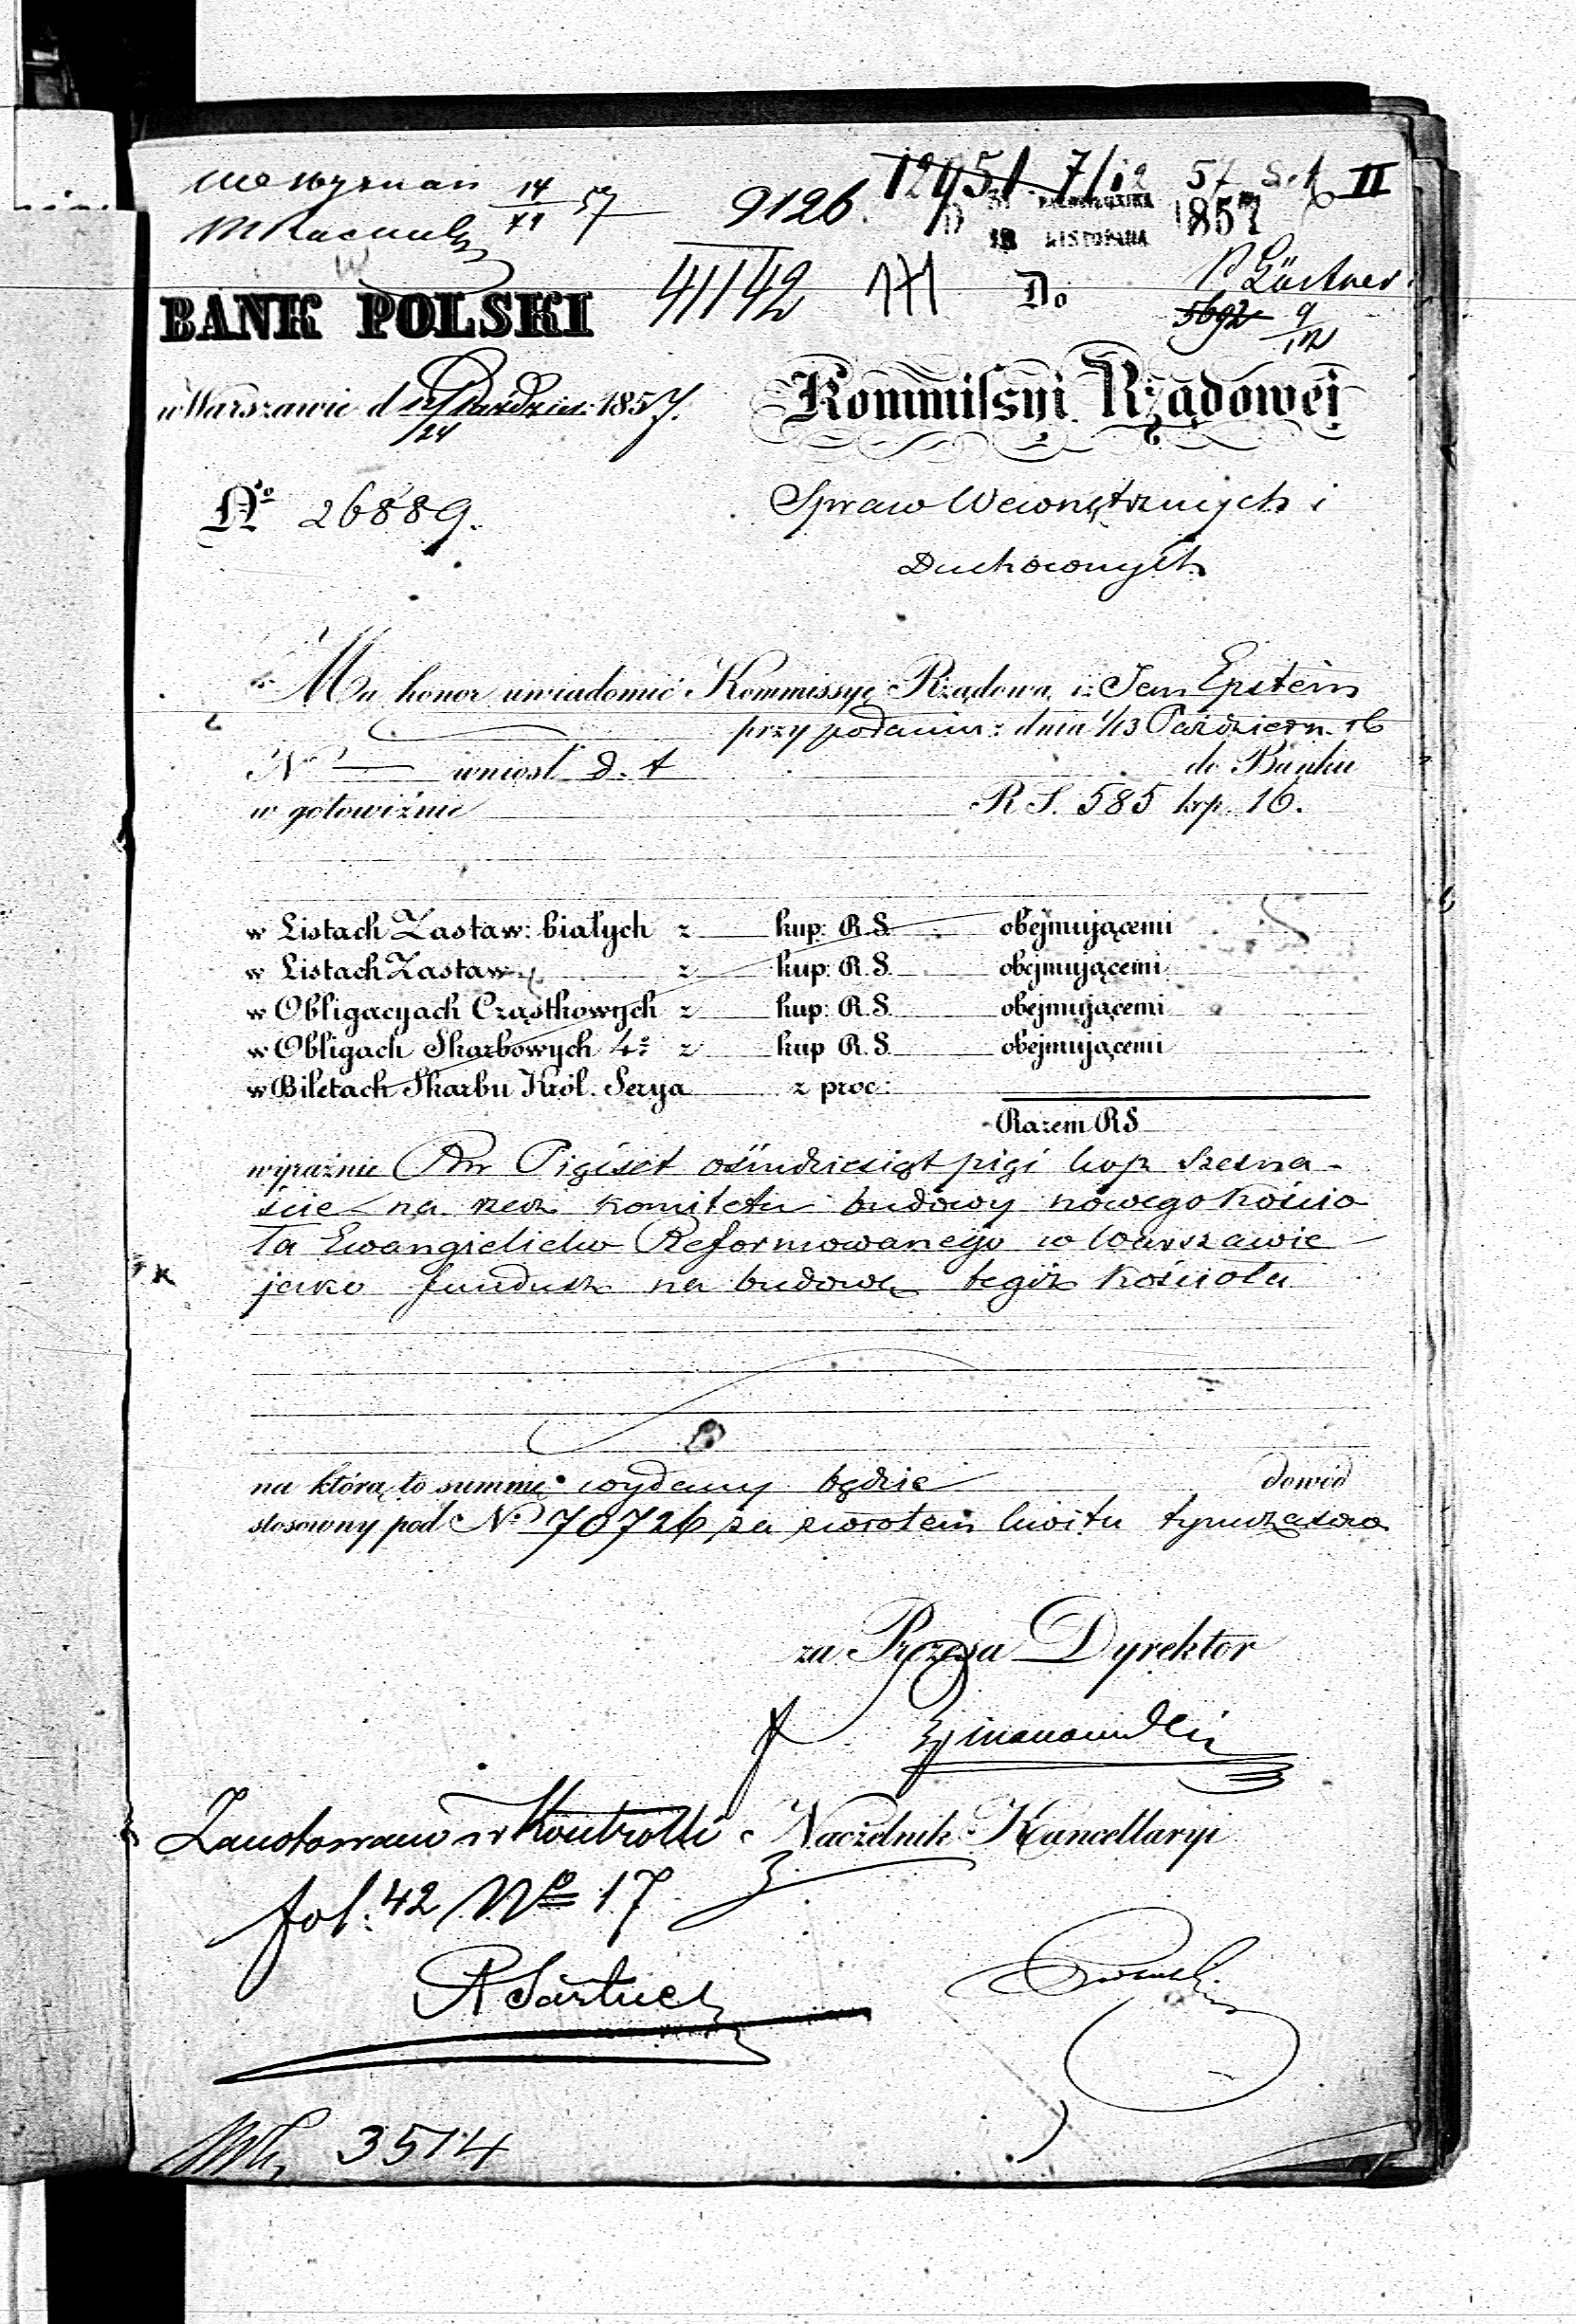 14/XI 57
9126.
12951. 7/12 57 II
31 PAŹDZIERNIKA 1857
12 LISTOPADA
41142
BANK POLSKI
Do
P Gärtner
5692 9/12
w Warszawie d 12/24 Paździer: 1857.
Kommissyi Rządowej
No 26889.
Spraw Wewnętrznych i
Duchownych
Ma honor uwiadomić Kommissyę Rządową iż Jan Epstein
przy podaniu z dnia 1/13 Październ. rb
No — wniósł d. t do Banku
w gotowiźnie RS. 585 kop. 16.
w Listach Zastaw: białych z kup: R.S. obejmującemi
w Listach Zastaw. z kup: R.S. obejmującemi
w Obligacyach Cząstkowych z kup: R.S. obejmującemi
w Obligach Skarbowych 4: z kup R.S. obejmującemi
w Biletach Skarbu Król. Serya z proc:
Razem RS
wyraźnie Rsr Pięćset ośmdziesiąt pięć kop szesna-
ście na rzecz komitetu budowy nowego kościo
ła Ewangielicko Reformowanego w Warszawie
jako fundusz na budowę tegoż kościoła
na którą to summę wydany będzie dowód
stosowny pod No 70726 za zwrotem kwitu tymczasowo
za Prezesa Dyrektor
Zanotowano w Kontrolli Naczelnik Kancellaryi
fol: 42 No 17
3514